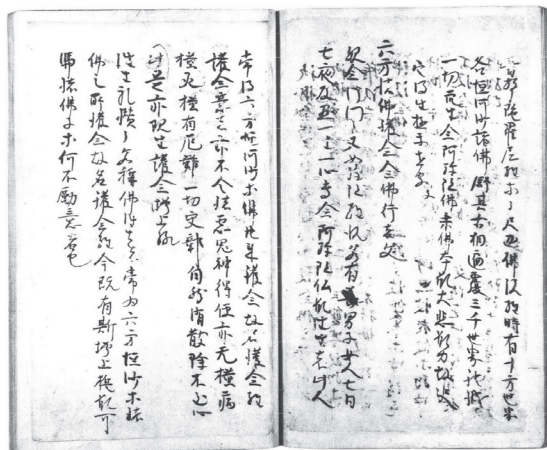 佛説経時有十方世界
各恒河沙諸佛 舒其舌相遍覆三千世界
一切衆生念阿弥陀佛乗佛本願大悲願力故决
定得生極
六方諸佛護念念佛行者文
観念法門 又如弥陀経説若有男子女人七日
七夜及盡一生一心専念阿弥陀仏願往生者此人
常得六方恒河沙等佛共来護念故名護念経
護念意者亦不令諸悪鬼神得便亦无横病
横死横有厄難一切灾鄣自然消散除不至心
此亦現生護念增上縁
往生礼讃云若称佛往生者常為六方恒沙等諸
佛之所護念故名護念経今既有斯增上誓願可
憑諸佛子等何不勵意